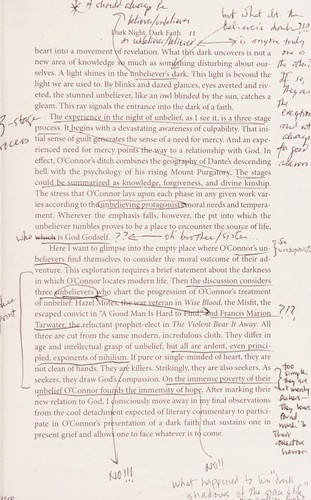 * A should always be
believer/unbeliever
or unbeliever/believer
but what abt the
believer's dark?!?
is anyone truly
one is
the other?
If so,
they are
the
exception
and not
always
Dark Night, Dark Faith 11
heart into a movement of revelation. What this dark uncovers is not a
new area of knowledge so much as something disturbing about our-
selves. A light shines in the unbeliever's dark. This light is beyond the
light we are used to. By blinks and dazed glances, eyes averted and riv-
eted, the stunned unbeliever, like an owl blinded by the sun, catches a
gleam. This ray signals the entrance into the dark of a faith.
The experience in the night of unbelief, as I see it, is a three-stage
process. It begins with a devastating awareness of culpability. That ini-
tial sense of guilt generates the sense of a need for mercy. And an ex-
perienced need for mercy points the way to a relationship with God. In
effect, O'Connor's ditch combines the geography of Dante's descending
hell with the psychology of his rising Mount Purgatory. The stages
could be summarized as knowledge, forgiveness, and divine kinship.
The stress that O'Connor lays upon each phase in any given work var-
ies according to the unbelieving protagonist's moral needs and tempera-
ment. Wherever the emphasis falls, however, the pit into which the
unbeliever tumbles proves to be a place to encounter the source of life,
who which is God Godself. ?? ← of brother/sister...
Here I want to glimpse into the empty place where O'Connor's un-
believers find themselves to consider the moral outcome of their ad-
venture. This exploration requires a brief statement about the darkness
in which O'Connor locates modern life. Then the discussion considers
three unbelievers who chart the progression of O'Connor's treatment
of unbelief: Hazel Motes, the war veteran in Wise Blood, the Misfit, the
escaped convict in "A Good Man Is Hard to Find," and Francis Marion
Tarwater, the reluctant prophet-elect in The Violent Bear It Away. All
three are cut from the same modern, incredulous cloth. They differ in
age and intellectual grasp of unbelief, but all are ardent, even princi-
pled, exponents of nihilism. If pure or single-minded of heart, they are
not clean of hands. They are killers. Strikingly, they are also seekers. As
seekers, they draw God's compassion. On the immense poverty of their
unbelief O'Connor founds the immensity of hope. After marking their
new relation to God, I consciously move away in my final observations
from the cool detachment expected of literary commentary to partici-
pate in O'Connor's presentation of a dark faith that sustains one in
present grief and allows one to face whatever is to come.
3-stage
??
So
too
simple,
they are
They have
Their
collective
horror
NO!!!
NO!!
what happened to his "dark